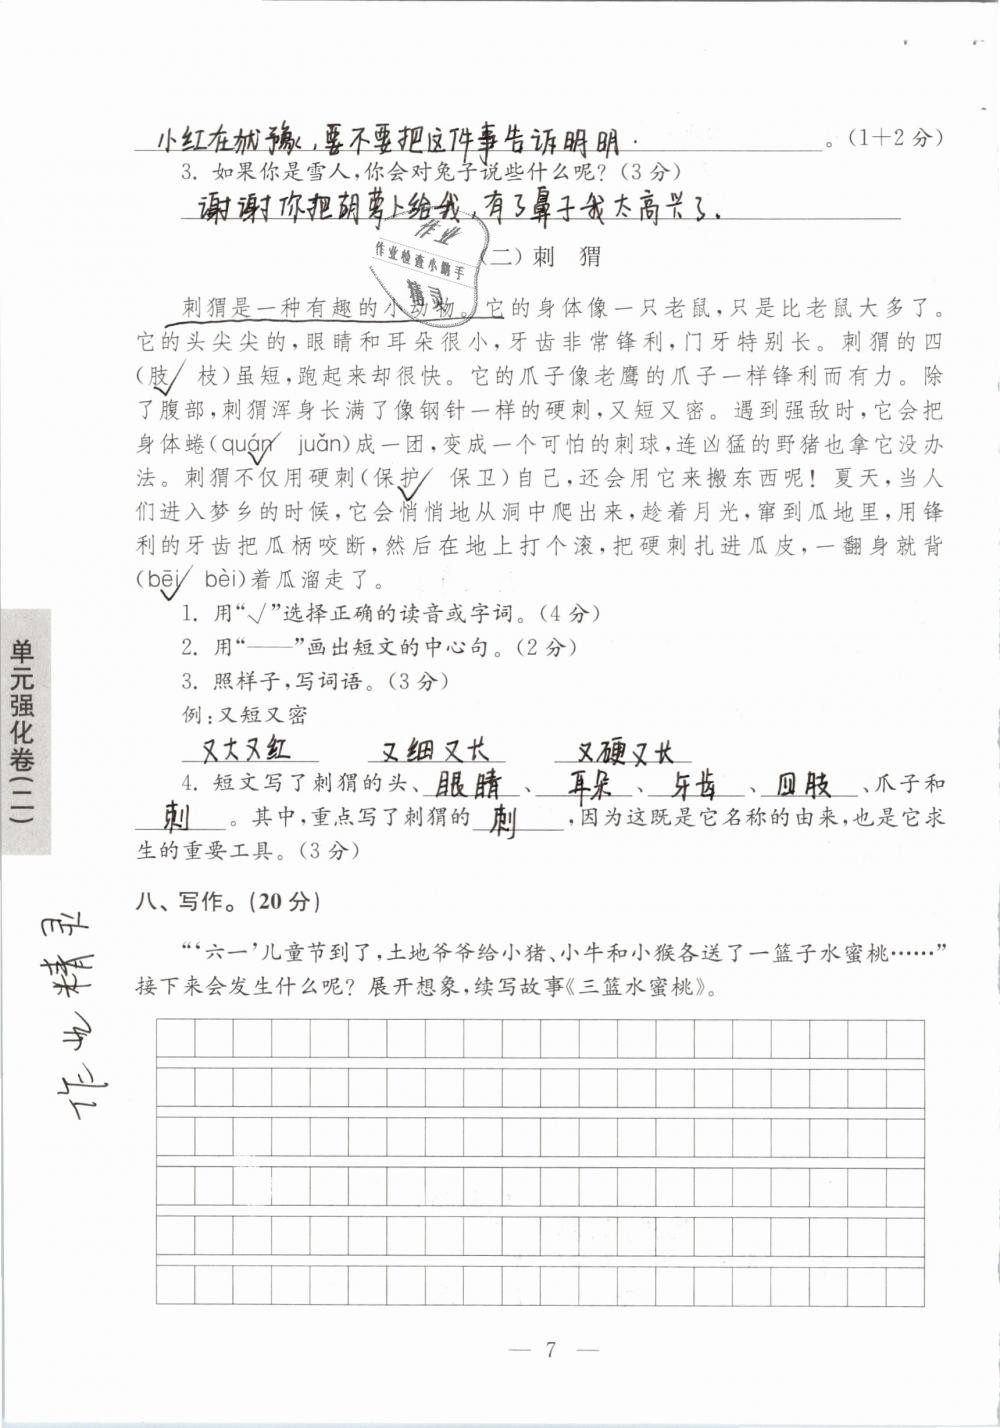 小红在犹豫，要不要把这件事告诉明明．。(1+2分)
3. 如果你是雪人,你会对兔子说些什么呢？(3分)
谢谢你把胡萝卜给我，有了鼻子我太高兴了．
(二) 刺　猬
作业
作业检查小助手
精灵
刺猬是一种有趣的小动物。它的身体像一只老鼠,只是比老鼠大多了。
它的头尖尖的,眼睛和耳朵很小,牙齿非常锋利,门牙特别长。刺猬的四
(肢√ 枝)虽短,跑起来却很快。它的爪子像老鹰的爪子一样锋利而有力。除
了腹部,刺猬浑身长满了像钢针一样的硬刺,又短又密。遇到强敌时,它会把
身体蜷(quán√ juǎn)成一团,变成一个可怕的刺球,连凶猛的野猪也拿它没办
法。刺猬不仅用硬刺(保护√ 保卫)自己,还会用它来搬东西呢！夏天,当人
们进入梦乡的时候,它会悄悄地从洞中爬出来,趁着月光,窜到瓜地里,用锋
利的牙齿把瓜柄咬断,然后在地上打个滚,把硬刺扎进瓜皮,一翻身就背
(bēi√ bèi)着瓜溜走了。
1. 用“√”选择正确的读音或字词。(4分)
2. 用“——”画出短文的中心句。(2分)
3. 照样子,写词语。(3分)
例:又短又密
又大又红 又细又长 又硬又长
4. 短文写了刺猬的头、眼睛、耳朵、牙齿、四肢、爪子和
刺。其中,重点写了刺猬的刺,因为这既是它名称的由来,也是它求
生的重要工具。(3分)
八、写作。(20分)
“‘六一’儿童节到了,土地爷爷给小猪、小牛和小猴各送了一篮子水蜜桃……”
接下来会发生什么呢？展开想象,续写故事《三篮水蜜桃》。
单元强化卷(二)
作业精灵
— 7 —